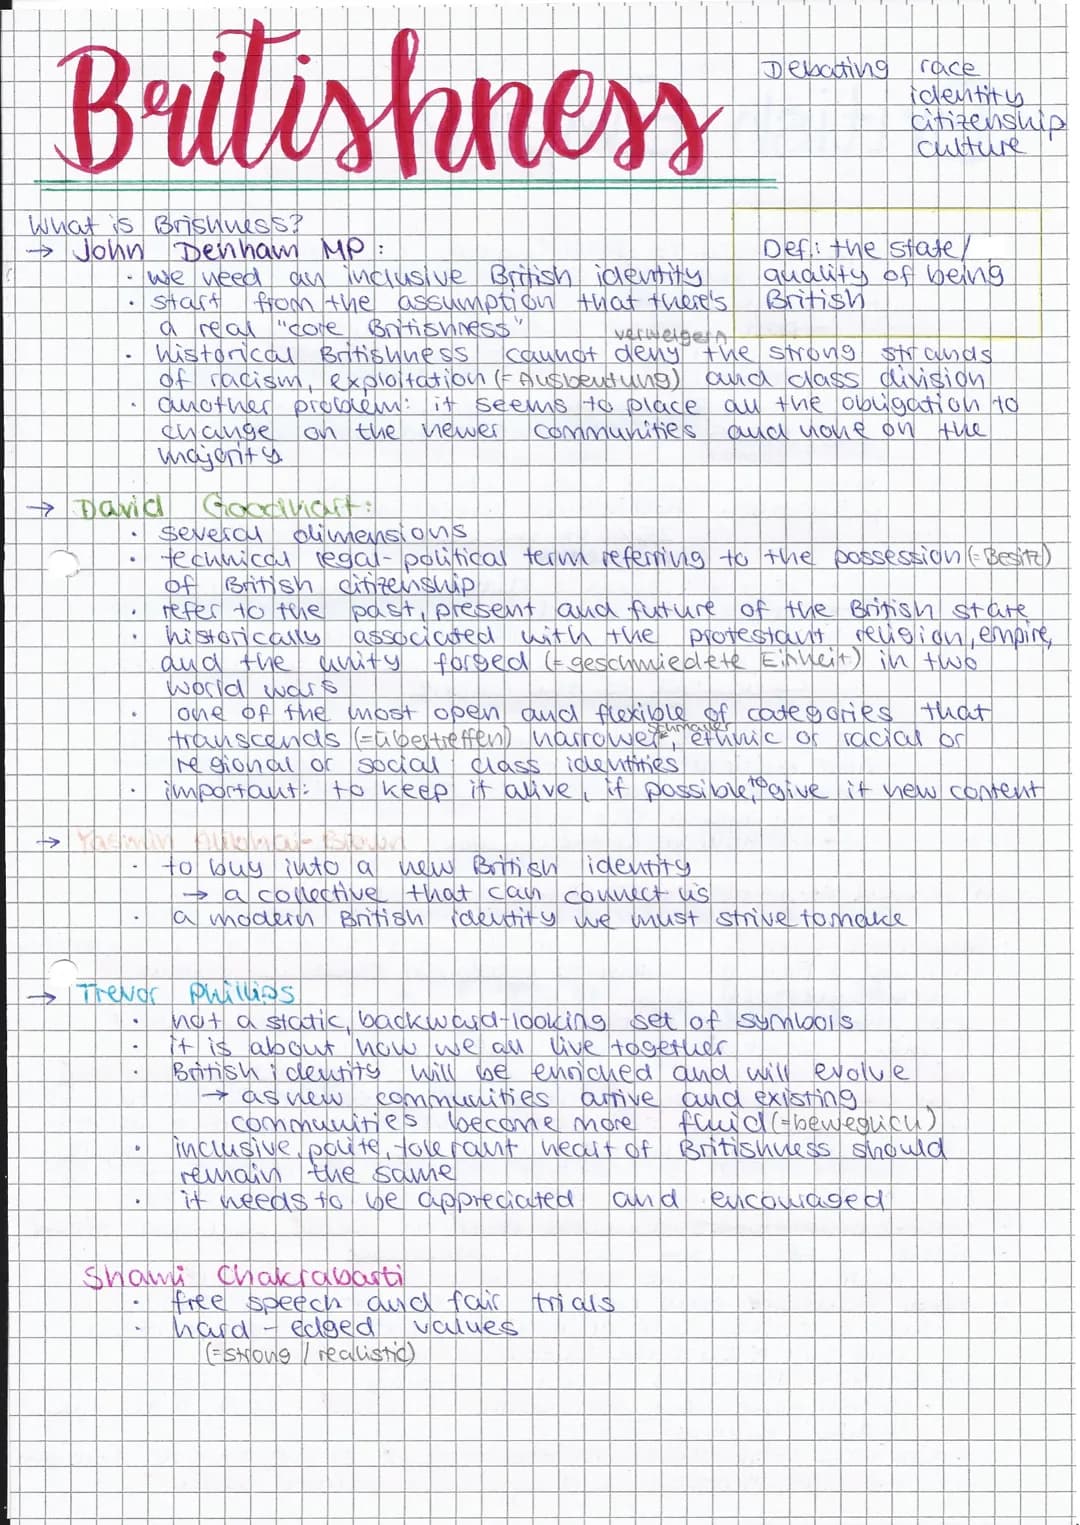 Britishness
Debating race
identity
citizenship
culture
What is Brishness?
→ John Denham MP:
Def.: the state/
quality of being
British
· we need an inclusive British identity
· start from the assumption that there's
a real "core Britishness"
verweigern
· historical Britishness cannot deny the strong strands
of racism, exploitation (= Ausbeutung) and class division
· another problem: it seems to place all the obligation to
change on the newer communities and none on the
majority
→ David Goodhart:
· several dimensions
· technical legal-political term referring to the possession (= Besitz)
of British citizenship
· refer to the past, present and future of the British state
· historically associated with the protestant religion, empire,
and the unity forged (= geschmiedete Einheit) in two
world wars
· one of the most open and flexible of categories that
schmaler
transcends (= übertreffen) narrower, ethnic or racial or
regional or social class identities
· important: to keep it alive, if possible, to give it new content
→ Yasmin Alibhai-Brown
· to buy into a new British identity
→ a collective that can connect us
· a modern British identity we must strive to make
→ Trevor Phillips
· not a static, backward-looking set of symbols
· it is about how we all live together
· British identity will be enriched and will evolve
→ as new communities arrive and existing
communities become more fluid (= beweglich)
· inclusive, polite, tolerant heart of Britishness should
remain the same
· it needs to be appreciated and encouraged
Shami Chakrabarti
· free speech and fair trials
· hard-edged values
(= strong / realistic)